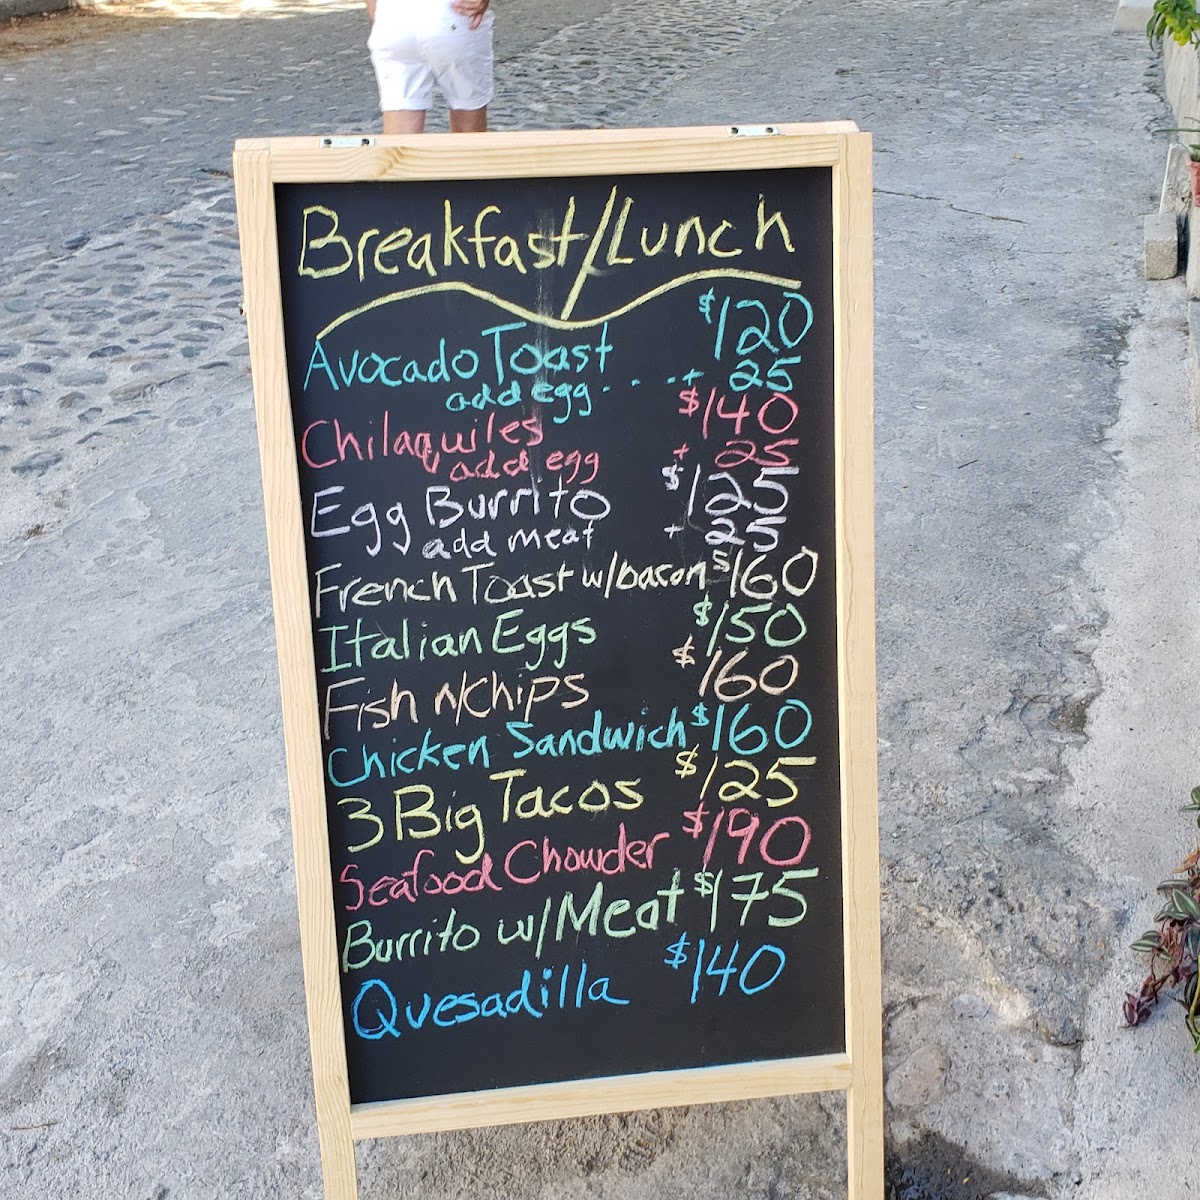 Breakfast/Lunch
Avocado Toast $120
add egg - - - - + 25
Chilaquiles $140
add egg + 25
Egg Burrito $125
add meat + 25
French Toast w/bacon $160
Italian Eggs $150
Fish n/Chips $160
Chicken Sandwich $160
3 Big Tacos $125
Seafood Chowder $190
Burrito w/Meat $175
Quesadilla $140